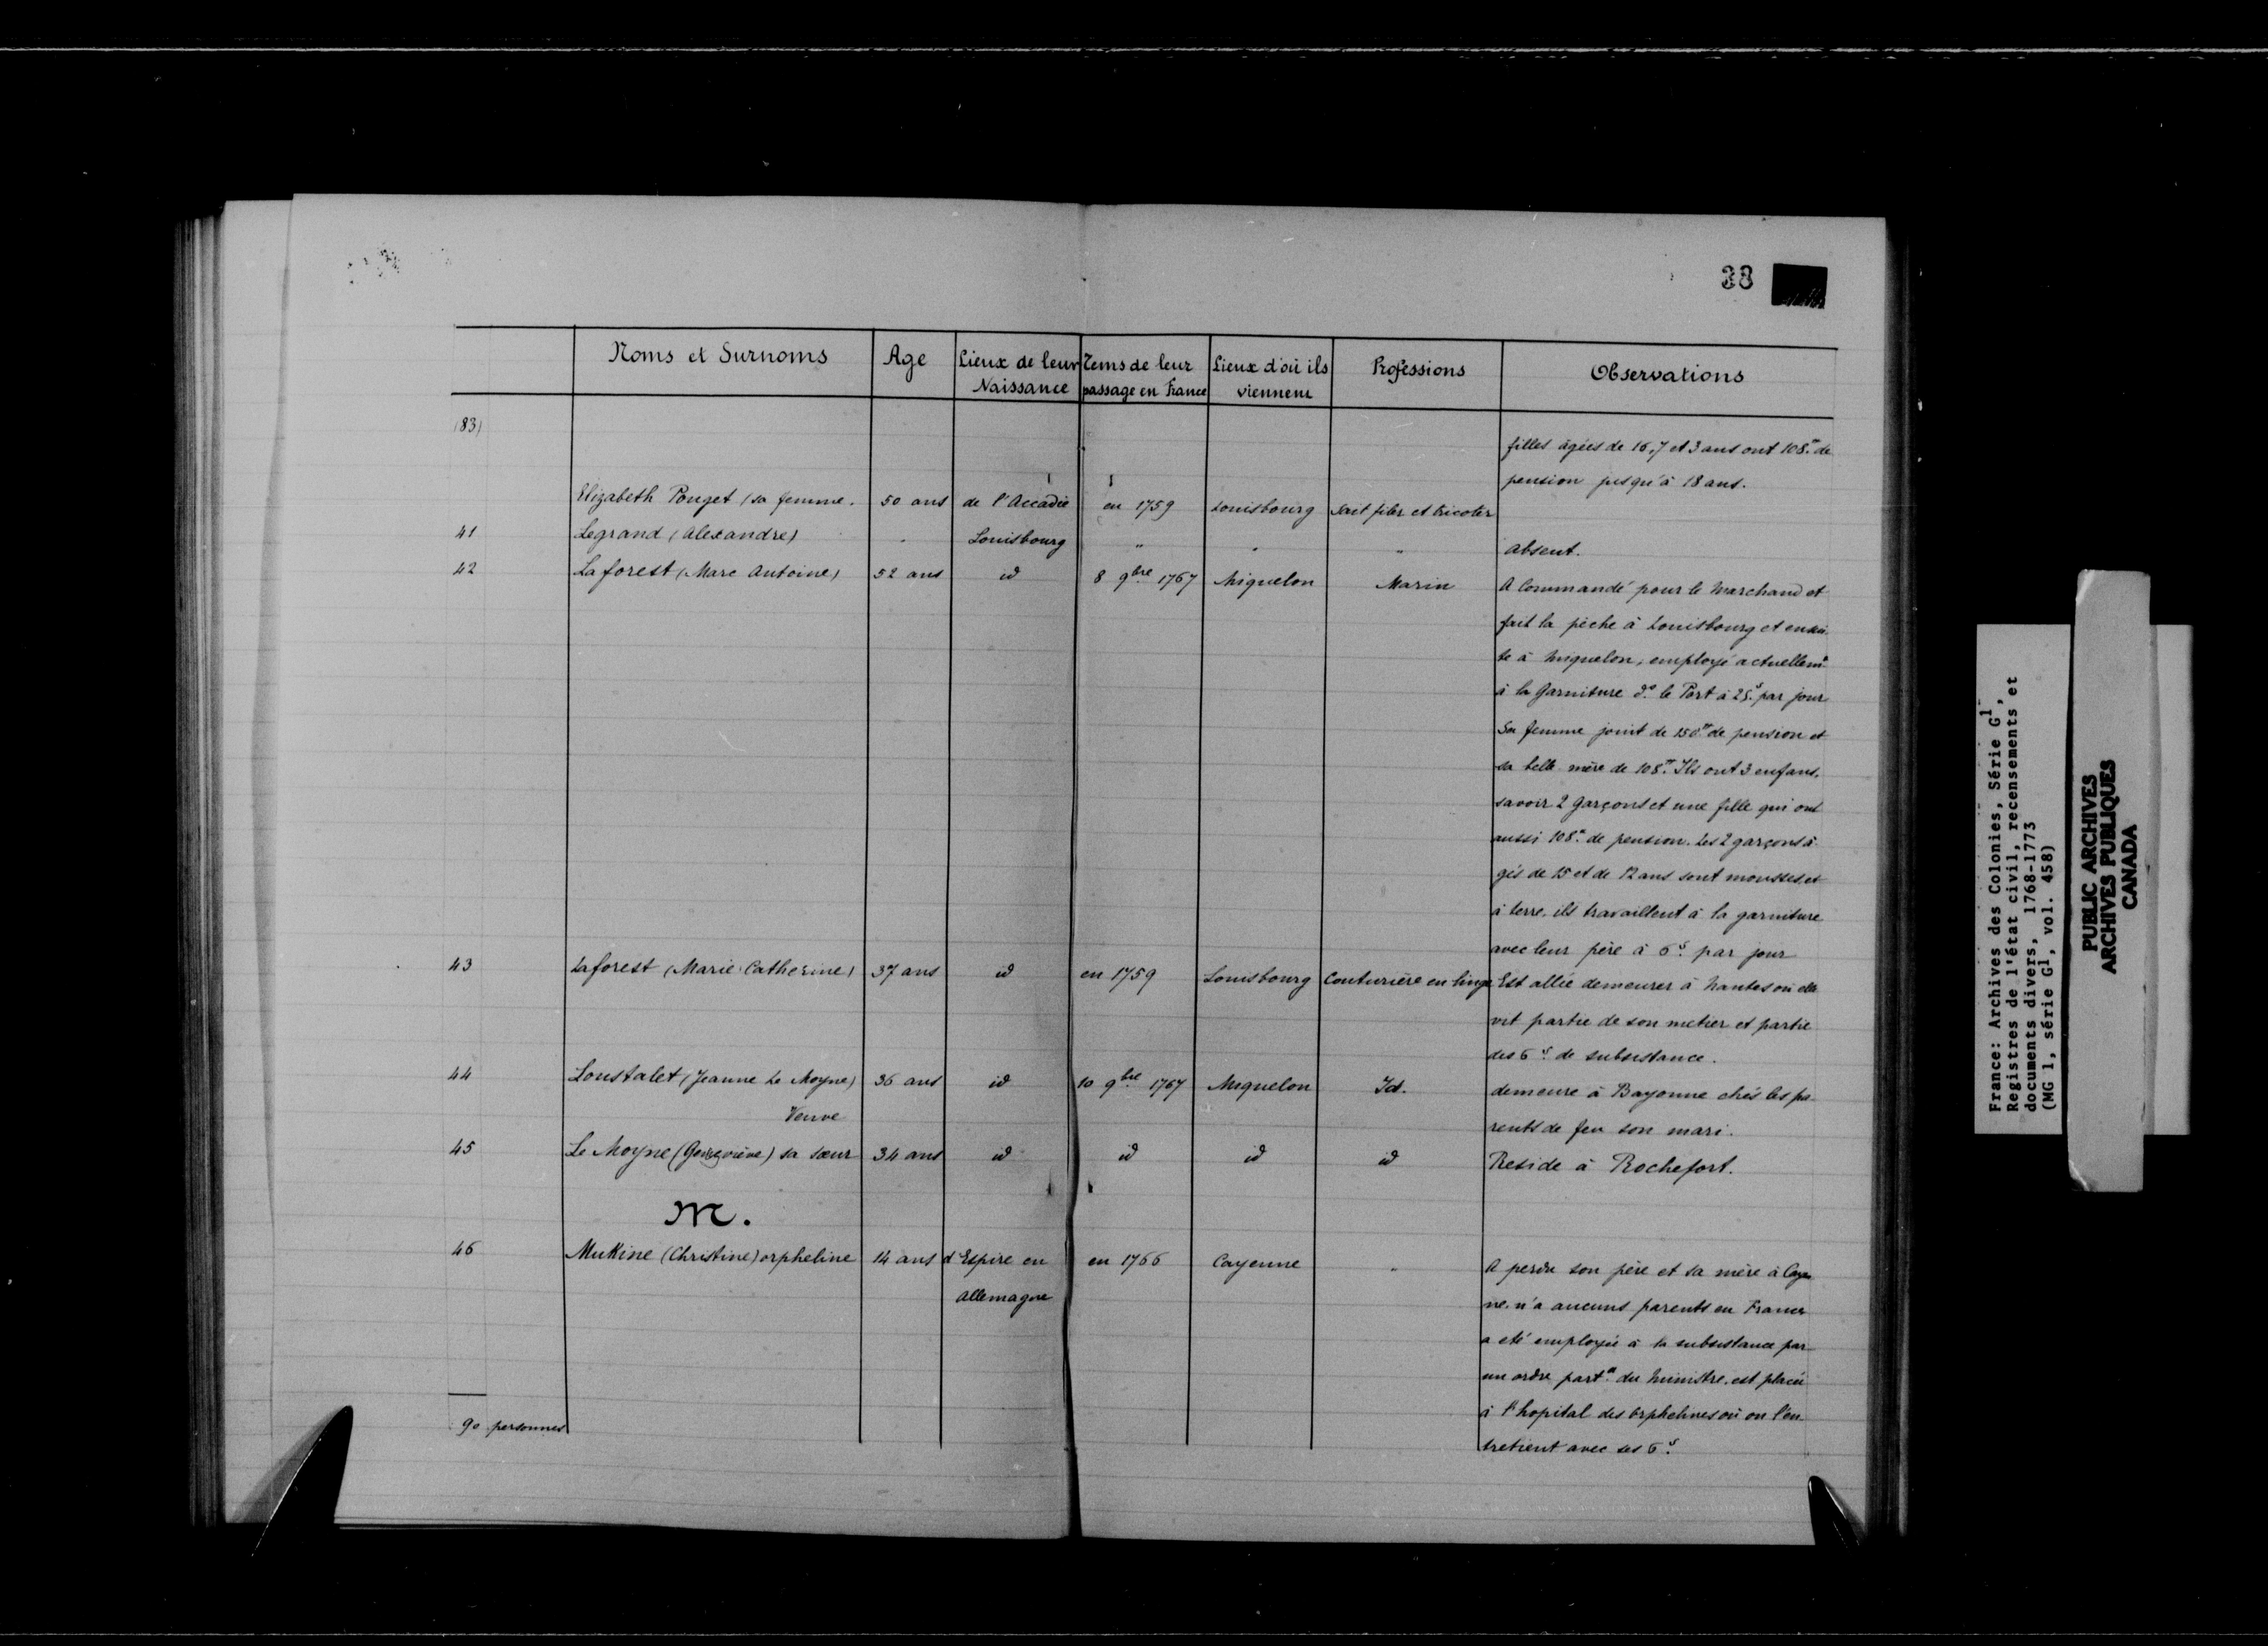 38
Noms et Surnoms | Age | Lieux de leur Naissance | Tems de leur passage en France | Lieux d'où ils viennent | Professions | Observations
(83)
filles âgées de 16, 7 et 3 ans ont 108.# de
pension jusqu'à 18 ans.
Elizabeth Pouget (sa femme. | 50 ans | de l'Accadie | en 1759 | Louisbourg | Sait filer et tricoter
41 | Legrand (Alexandre) | " | Louisbourg | " | " | " | Absent.
42 | Laforest (Marc Antoine) | 52 ans | id | 8 9bre 1767 | Miquelon | Marin | A Commandé pour le Marchand et
fait la pêche à Louisbourg et ensui-
te à Miquelon, employé actuellemt
à la Garniture ds le Port à 25s par jour
Sa femme jouit de 150# de pension et
sa belle mère de 108# Ils ont 3 enfans,
savoir 2 Garçons et une fille qui ont
aussi 108# de pension. Les 2 garçons â-
gés de 15 et de 12 ans sont mousses, et
à terre, ils travaillent à la garniture
avec leur père à 6s par jour
43 | Laforest (Marie Catherine) | 37 ans | id | en 1759 | Louisbourg | Couturière en linge | Est allée demeurer à Nantes où elle
vit partie de son metier et partie
des 6s de subsistance.
44 | Loustalet (Jeanne Le Moyne) | 36 ans | id | 10 9bre 1767 | Miquelon | Id. | demeure à Bayonne chés les pa-
Veuve | rents de feu son mari.
45 | Le Moyne (Geneviève) sa sœur | 34 ans | id | id | id | id | Reside à Rochefort.
M.
46 | MuKine (Christine) orpheline | 14 ans | d'Espire en | en 1766 | Cayenne | " | A perdu son père et sa mère à Cayen
Allemagne | ne. n'a aucuns parents en France
a eté employée à la subsistance par
un ordre partr du Ministre, est placée
à l'hopital des Orphelines où on l'en
tretient avec ses 6s
90 personnes
France: Archives des Colonies, Série G1,
Registres de l'état civil, recensements et
documents divers, 1768-1773
(MG 1, série G1, vol. 458)
PUBLIC ARCHIVES
ARCHIVES PUBLIQUES
CANADA